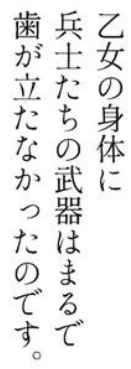 乙女の身体に
兵士たちの武器はまるで
歯が立たなかったのです。